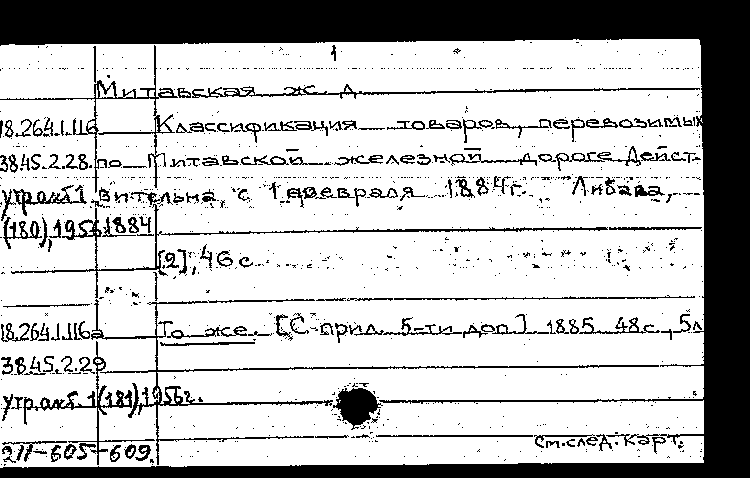 1
Митавская ж. д.
18.264.1.116 Классификация товаров, перевозимых
38.45.2.28. по Митавской железной дороге. Дейст-
утр.акт 1 вительна с 1 февраля 1884г. Либава,
(180), 1956 1884
[2], 46 с
18.264.1.116а То же. [С прил. 5-ти доп.] 1885. 48с., 5л
38.45.2.29
утр.акт. 1(181), 1956г.
211-605-609. См.след. карт.